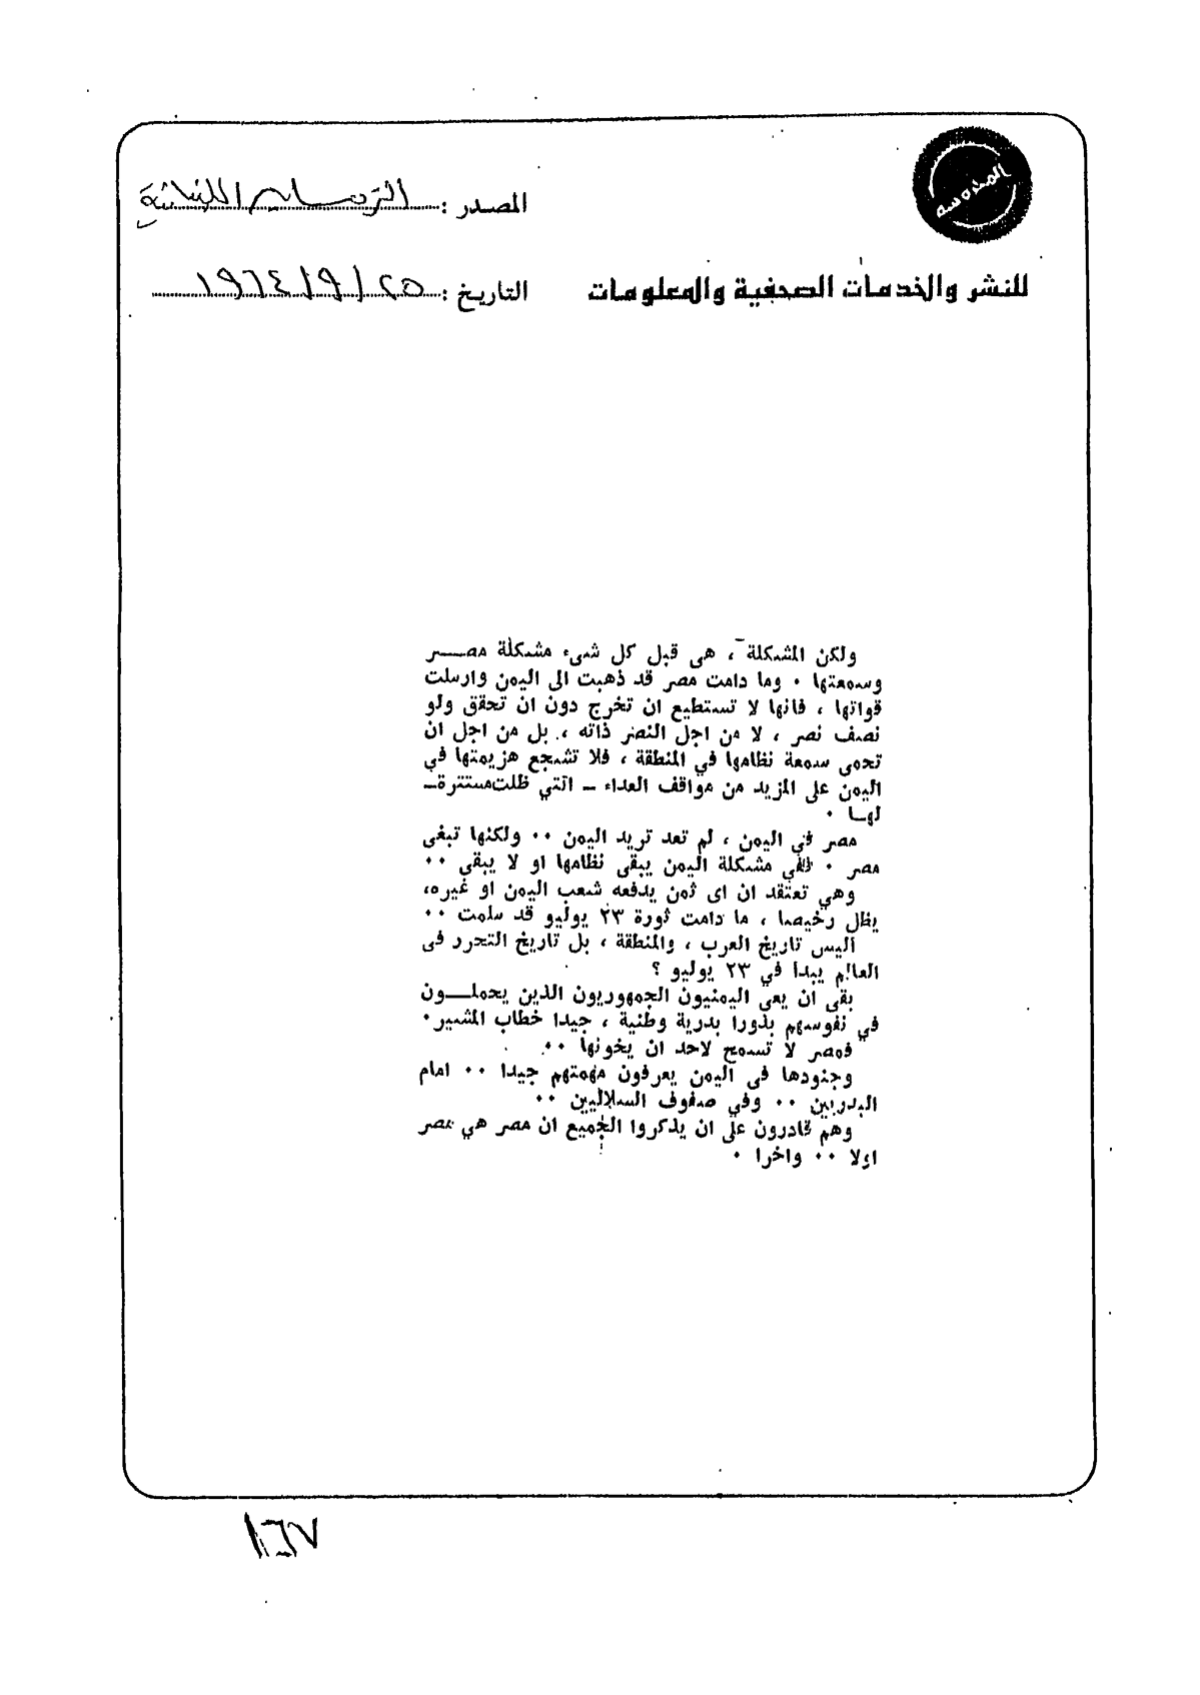 المحروسة
المصدر : اللبنانية
للنشر والخدمات الصحفية والمعلومات
التاريخ : ٢٥ / ٩ / ١٩٦٤
ولكن المشكلة ، هى قبل كل شىء مشكلة مصر
وسمعتها ٠ وما دامت مصر قد ذهبت الى اليمن وارسلت
قواتها ، فانها لا تستطيع ان تخرج دون ان تحقق ولو
نصف نصر ، لا من اجل النصر ذاته ، بل من اجل ان
تحمى سمعة نظامها في المنطقة ، فلا تشجع هزيمتها في
اليمن على المزيد من مواقف العداء ــ التي ظلت مستترة ــ
لها ٠
مصر في اليمن ، لم تعد تريد اليمن ٠٠ ولكنها تبغى
مصر ٠ ففي مشكلة اليمن يبقى نظامها او لا يبقى ٠٠
وهي تعتقد ان اى ثمن يدفعه شعب اليمن او غيره،
يظل رخيصا ، ما دامت ثورة ٢٣ يوليو قد سلمت ٠٠
اليس تاريخ العرب ، والمنطقة ، بل تاريخ التحرر فى
العالم يبدا في ٢٣ يوليو ؟
بقى ان يعى اليمنيون الجمهوريون الذين يحملون
في نفوسهم بذورا بدرية وطنية ، جيدا خطاب المشير ٠
فمصر لا تسمح لاحد ان يخونها ٠٠
وجنودها فى اليمن يعرفون مهمتهم جيدا ٠٠ امام
البدريين ٠٠ وفي صفوف السلاليين ٠٠
وهم قادرون على ان يذكروا الجميع ان مصر هي مصر
اولا ٠٠ واخرا ٠
١٦٧